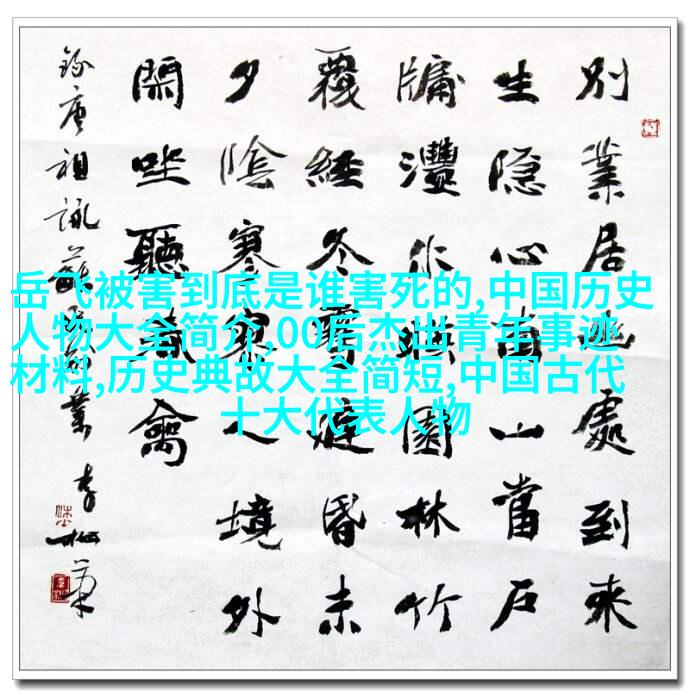 別業居幽處到來
生隐心南山當戶
牖灃水映園林竹
覆經冬雪庭昏未
夕陰寥寥人境外
閑坐聽春禽
錄唐祖詠蘇氏別業
岳飞被害到底是谁害死的,中国历史
人物大全简介,00后杰出青年事迹
材料,历史典故大全简短,中国古代
十大代表人物